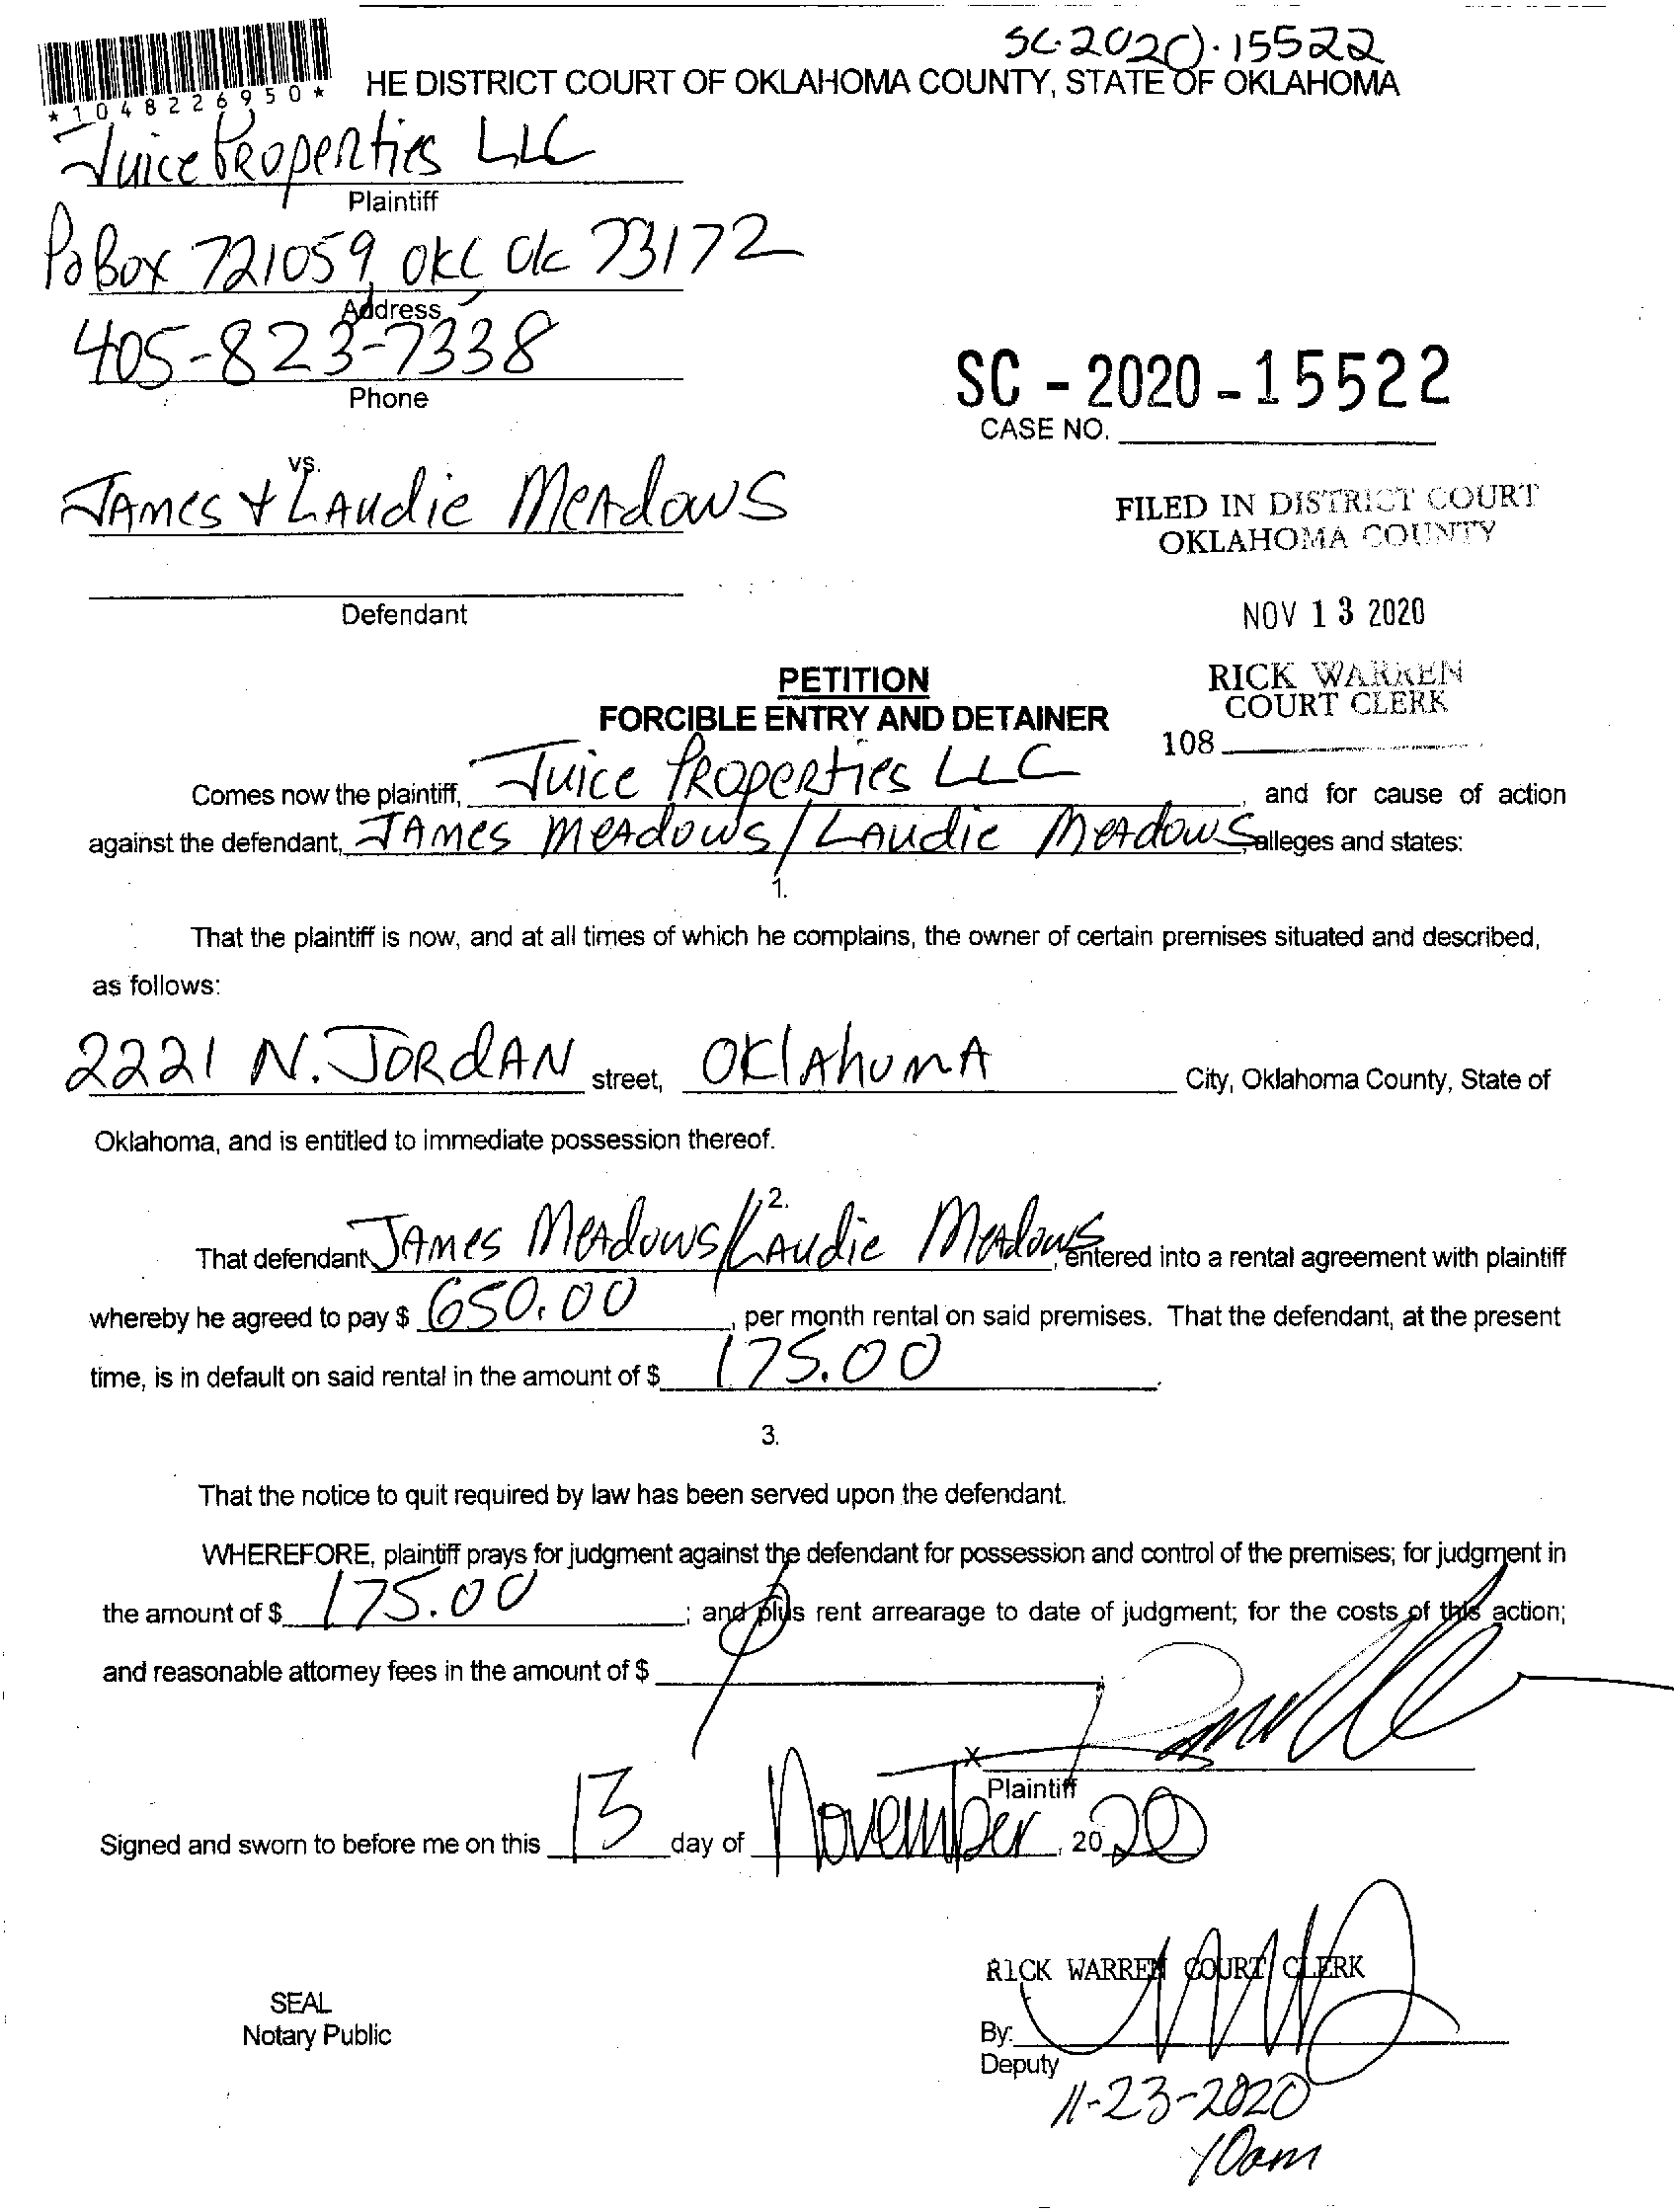 SC-2020-15522
HE DISTRICT COURT OF OKLAHOMA COUNTY, STATE OF OKLAHOMA
*1048226950*
Juice Properties LLC
Plaintiff
Po Box 721059, OKC Ok 73172
Address
405-823-7338
Phone
SC - 2020 - 15522
CASE NO.
vs.
James + Laudie Meadows
FILED IN DISTRICT COURT
OKLAHOMA COUNTY
Defendant
NOV 13 2020
PETITION
RICK WARREN
COURT CLERK
FORCIBLE ENTRY AND DETAINER
108
Comes now the plaintiff, Juice Properties LLC, and for cause of action
against the defendant, James Meadows / Laudie Meadows, alleges and states:
1.
That the plaintiff is now, and at all times of which he complains, the owner of certain premises situated and described,
as follows:
2221 N. Jordan street, Oklahoma City, Oklahoma County, State of
Oklahoma, and is entitled to immediate possession thereof.
2.
That defendant James Meadows/Laudie Meadows, entered into a rental agreement with plaintiff
whereby he agreed to pay $ 650.00, per month rental on said premises. That the defendant, at the present
time, is in default on said rental in the amount of $ 175.00.
3.
That the notice to quit required by law has been served upon the defendant.
WHEREFORE, plaintiff prays for judgment against the defendant for possession and control of the premises; for judgment in
the amount of $ 175.00; and plus rent arrearage to date of judgment; for the costs of this action;
and reasonable attorney fees in the amount of $
X
Plaintiff
Signed and sworn to before me on this 13 day of November, 2020
RICK WARREN COURT CLERK
SEAL
Notary Public
By:
Deputy
11-23-2020
10am